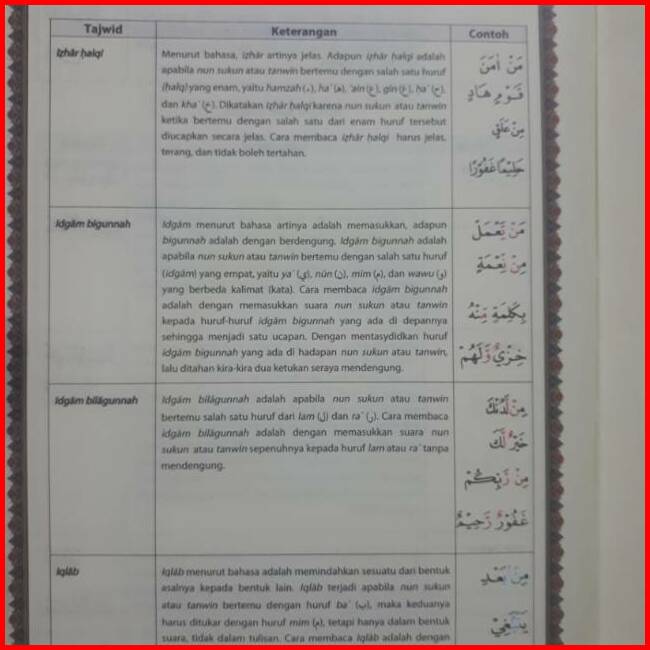 Tajwid Keterangan Contoh
Iẓhār ḥalqi
Menurut bahasa, iẓhār artinya jelas. Adapun iẓhār ḥalqi adalah
apabila nun sukun atau tanwin bertemu dengan salah satu huruf
(ḥalq) yang enam, yaitu hamzah (ء), ha` (هـ), 'ain (ع), gin (غ), ḥa` (ح),
dan kha` (خ). Dikatakan iẓhār ḥalqi karena nun sukun atau tanwin
ketika bertemu dengan salah satu dari enam huruf tersebut
diucapkan secara jelas. Cara membaca iẓhar ḥalqi harus jelas,
terang, dan tidak boleh tertahan.
مَنْ اٰمَنَ
قَوْمٍ هَادٍ
مِنْ عَلَقٍ
حَلِيْمًا غَفُوْرًا
Idgām bigunnah
Idgām menurut bahasa artinya adalah memasukkan, adapun
bigunnah adalah dengan berdengung. Idgām bigunnah adalah
apabila nun sukun atau tanwin bertemu dengan salah satu huruf
(idgām) yang empat, yaitu ya` (ي), nūn (ن), mim (م), dan wawu (و)
yang berbeda kalimat (kata). Cara membaca idgām bigunnah
adalah dengan memasukkan suara nun sukun atau tanwin
kepada huruf-huruf idgām bigunnah yang ada di depannya
sehingga menjadi satu ucapan. Dengan mentasydidkan huruf
idgām bigunnah yang ada di hadapan nun sukun atau tanwin,
lalu ditahan kira-kira dua ketukan seraya mendengung.
مَنْ يَّعْمَلْ
مِنْ نِّعْمَةٍ
بِكَلِمَةٍ مِّنْهُ
خِزْيٌ وَّلَهُمْ
Idgām bilāgunnah
Idgām bilāgunnah adalah apabila nun sukun atau tanwin
bertemu salah satu huruf dari lam (ل) dan ra` (ر). Cara membaca
idgām bilāgunnah adalah dengan memasukkan suara nun
sukun atau tanwin sepenuhnya kepada huruf lam atau ra` tanpa
mendengung.
مِنْ لَّدُنْكَ
خَيْرٌ لَّكَ
مِنْ رَّبِّكُمْ
غَفُوْرٌ رَّحِيْمٌ
Iqlāb
Iqlāb menurut bahasa adalah memindahkan sesuatu dari bentuk
asalnya kepada bentuk lain. Iqlāb terjadi apabila nun sukun
atau tanwin bertemu dengan huruf ba` (ب), maka keduanya
harus ditukar dengan huruf mim (م), tetapi hanya dalam bentuk
suara, tidak dalam tulisan. Cara membaca Iqlāb adalah dengan
مِنْ بَعْدِ
يَنْبَغِيْ